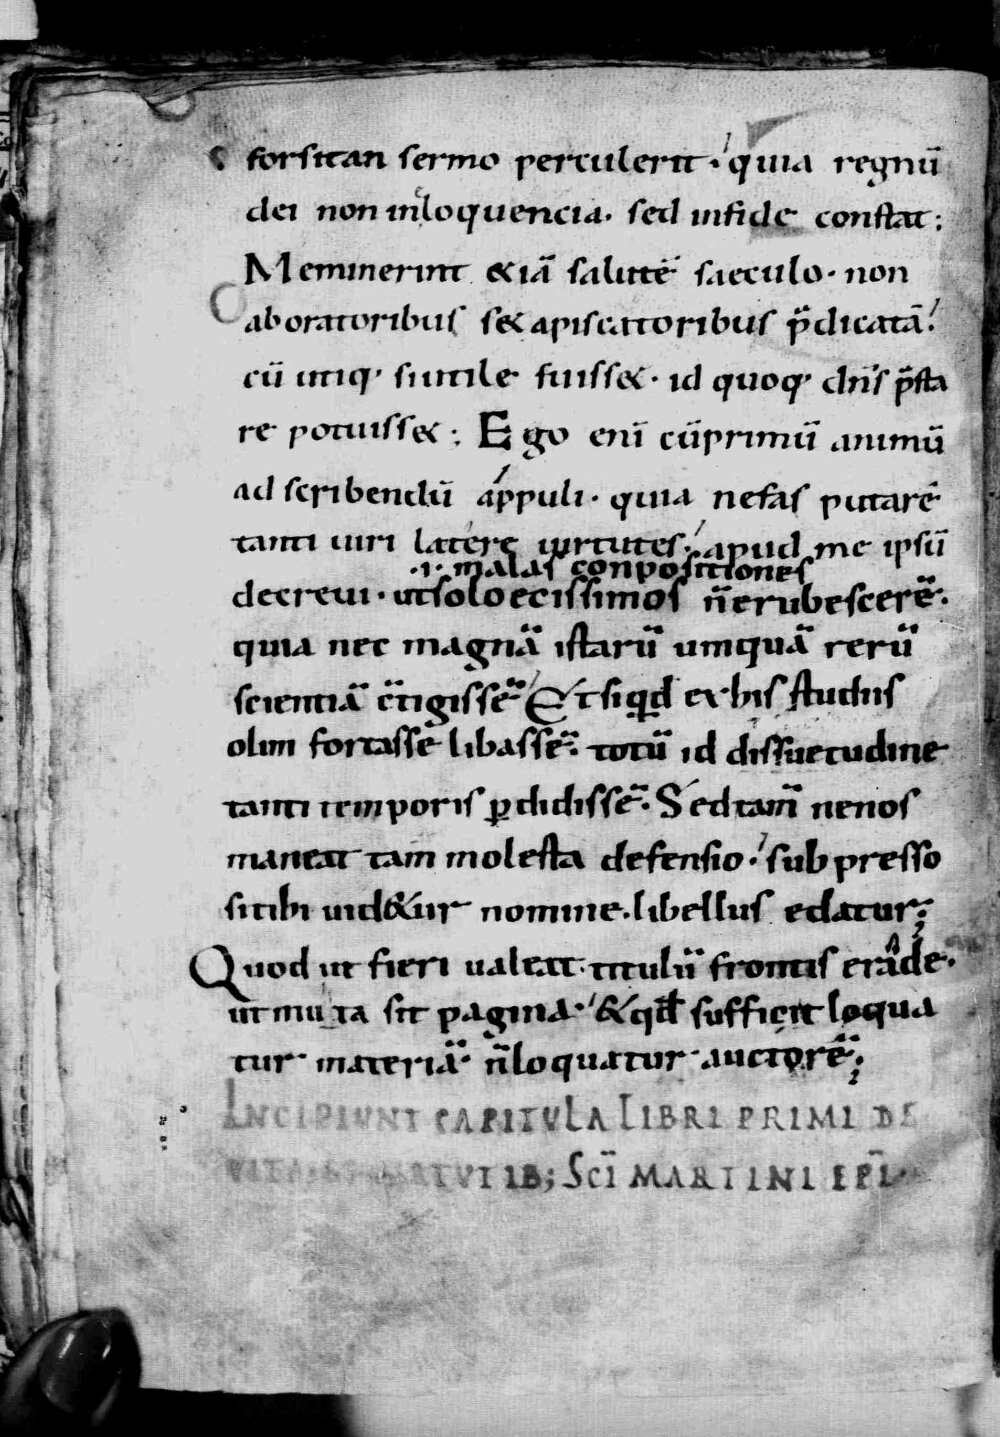 forsitan sermo perculerit· quia regnū
dei non in loquencia· sed in fide constat;
Meminerint &iā salutē saeculo· non
ab oratoribus s& a piscatoribus p̄dicatā·
cū utiq· si utile fuiss&· id quoq· dn̄s p̄sta
re potuiss&; Ego enī cū primū animū
ad scribendū appuli· quia nefas putarē
tanti uiri latere uirtutes· apud me ipsū
·i· malas conpositiones
decreui· ut soloecissimos n̄ erubescerē·
quia nec magnā istarū umquā rerū
scientiā c̄tigissē· Et siqd ex his studiis
olim fortasse libassē· totū id dissuetudine
tanti temporis p̱didissē· Sed tam̄ ne nos
maneat tam molesta defensio· subpresso
si tibi uid&ur nomine· libellus edatur;
Quod ut fieri ualeat· titulū frontis erade·
ut muta sit pagina· & qd̄ sufficit loqua
tur materiā· n̄ loquatur auctorē;
INCIPIUNT CAPITULA LIBRI PRIMI DE
VITA ET VIRTUTIB; SCĪ MARTINI EPĪ·